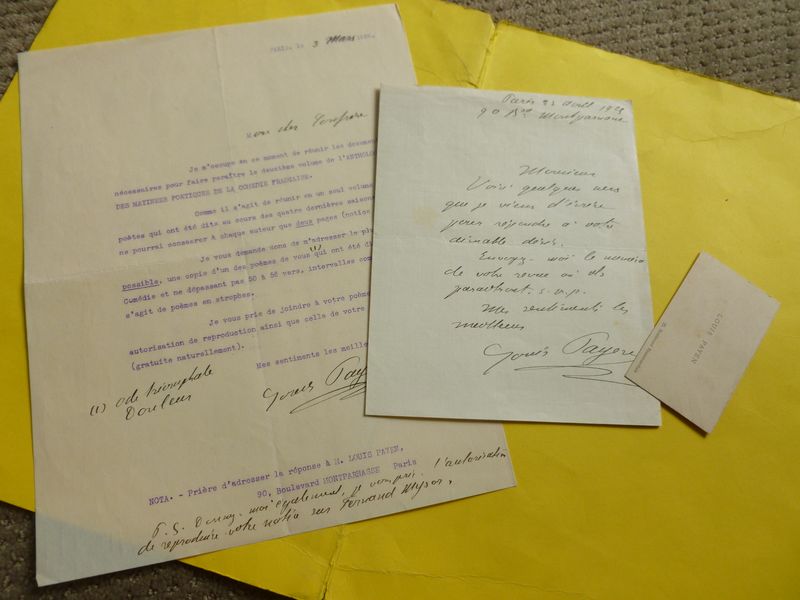 PARIS, le 3 Mars
Mon cher Confrère
Je m'occupe en ce moment de réunir les docume
nécessaires pour faire paraître le deuxième volume de l'ANTHOLO
DES MATINEES POETIQUES DE LA COMEDIE FRANCAISE.
Comme il s'agit de réunir en un seul volume
poètes qui ont été dits au cours des quatre dernières saison
ne pourrai consacrer à chaque auteur que deux pages (notice
Je vous demande donc de m'adresser le plu
possible, une copie d'un des poèmes de vous qui ont été di
(1)
Comédie et ne dépassant pas 50 à 56 vers, intervalles com
s'agit de poèmes en strophes.
Je vous prie de joindre à votre poème
autorisation de reproduction ainsi que celle de votre
(gratuite naturellement).
Mes sentiments les meille
Louis Paye
(1) Ode triomphale
Douleur
NOTA. - Prière d'adresser la réponse à M. LOUIS PAYEN,
90, Boulevard MONTPARNASSE Paris
P.S. Donnez-moi également, je vous prie, l'autorisation
de reproduire votre notice sur Fernand
Paris 22 avril
90 Bd Montparnasse
Monsieur
Voici quelques vers
que je viens d'écrire
pour répondre à votre
aimable désir.
Envoyez-moi le numéro
de votre revue où ils
paraitront. s.v.p.
Mes sentiments les
meilleurs
Louis Payen
LOUIS PAYEN